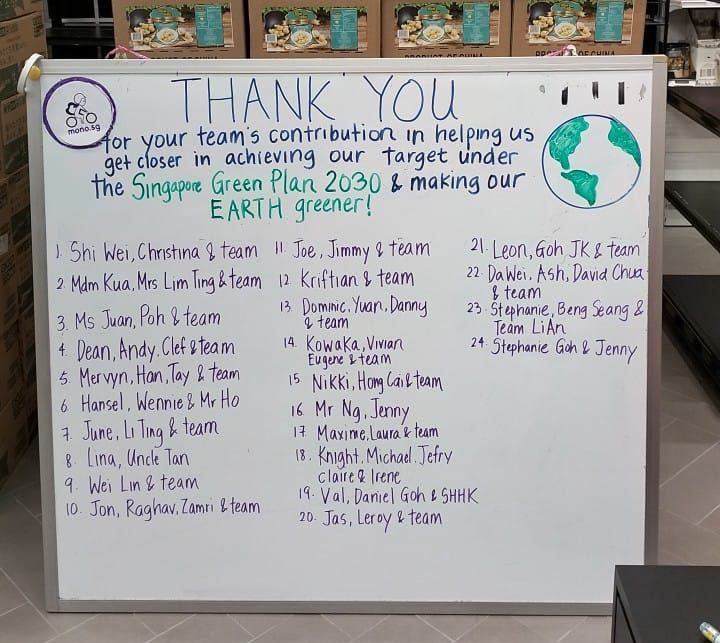 PRODUCT OF CHINA
mono.sg
THANK YOU
for your team's contribution in helping us
get closer in achieving our target under
the Singapore Green Plan 2030 & making our
EARTH greener!
1. Shi Wei, Christina & team
2. Mdm Kua, Mrs Lim Ting & team
3. Ms Juan, Poh & team
4. Dean, Andy, Clef & team
5. Mervyn, Han, Tay & team
6. Hansel, Wennie & Mr Ho
7. June, Li Ting & team
8. Lina, Uncle Tan
9. Wei Lin & team
10. Jon, Raghav, Zamri & team
11. Joe, Jimmy & team
12. Kriftian & team
13. Dominic, Yuan, Danny
& team
14. Kowaka, Vivian
Eugene & team
15. Nikki, Hong Cai & team
16. Mr Ng, Jenny
17. Maxime, Laura & team
18. Knight, Michael, Jefry
Claire & Irene
19. Val, Daniel Goh & SHHK
20. Jas, Leroy & team
21. Leon, Goh JK & team
22. DaWei, Ash, David Chua
& team
23. Stephanie, Beng Seang &
Team LiAn
24. Stephanie Goh & Jenny